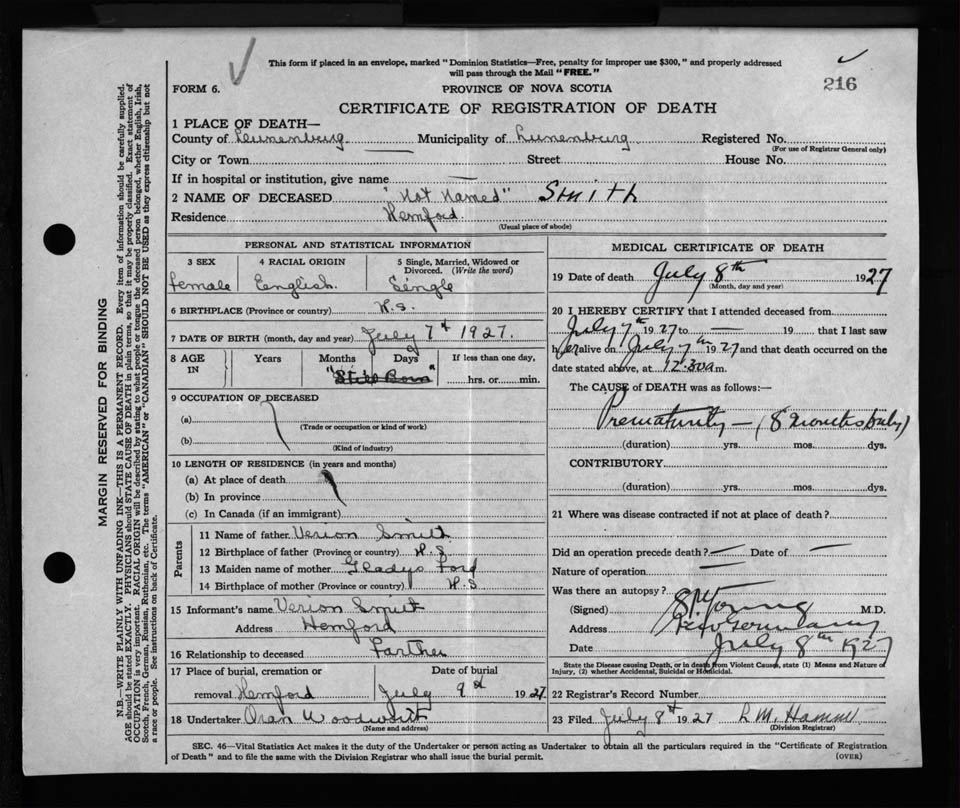 This form if placed in an envelope, marked "Dominion Statistics—Free, penalty for improper use $300," and properly addressed
will pass through the Mail "FREE."
216
FORM 6.
PROVINCE OF NOVA SCOTIA
CERTIFICATE OF REGISTRATION OF DEATH
1 PLACE OF DEATH—
County of Lunenburg Municipality of Lunenburg Registered No.
(For use of Registrar General only)
City or Town Street House No.
If in hospital or institution, give name —
2 NAME OF DECEASED "Not Named" Smith
Residence Hemford
(Usual place of abode)
PERSONAL AND STATISTICAL INFORMATION
3 SEX 4 RACIAL ORIGIN 5 Single, Married, Widowed or
Divorced. (Write the word)
female English Single
6 BIRTHPLACE (Province or country) N.S.
7 DATE OF BIRTH (month, day and year) July 7th 1927.
8 AGE IN Years Months Days If less than one day,
"Still Born" hrs. or min.
9 OCCUPATION OF DECEASED
(a)
(Trade or occupation or kind of work)
(b)
(Kind of industry)
10 LENGTH OF RESIDENCE (in years and months)
(a) At place of death
(b) In province
(c) In Canada (if an immigrant)
Parents
11 Name of father Verion Smith
12 Birthplace of father (Province or country) N.S
13 Maiden name of mother Gladys Ford
14 Birthplace of mother (Province or country) N.S
15 Informant's name Verion Smith
Address Hemford
16 Relationship to deceased Farther
17 Place of burial, cremation or Date of burial
removal Hemford July 9th 1927
18 Undertaker Oran
(Name and address)
MEDICAL CERTIFICATE OF DEATH
19 Date of death July 8th 1927
(Month, day and year)
20 I HEREBY CERTIFY that I attended deceased from
July 7th 1927 to — 19 that I last saw
her alive on July 7th 1927 and that death occurred on the
date stated above, at 12.30 a m.
The CAUSE of DEATH was as follows:—
Prematurity — (8 months baby)
(duration) yrs. mos. dys.
CONTRIBUTORY
(duration) yrs. mos. dys.
21 Where was disease contracted if not at place of death?
Did an operation precede death? — Date of —
Nature of operation —
Was there an autopsy?
(Signed) Young M.D.
Address New Germany
Date July 8th 1927
State the Disease causing Death, or in death from Violent Causes, state (1) Means and Nature of
Injury, (2) whether Accidental, Suicidal or Homicidal.
22 Registrar's Record Number
23 Filed July 8th 1927 L.M.
(Division Registrar)
SEC. 46—Vital Statistics Act makes it the duty of the Undertaker or person acting as Undertaker to obtain all the particulars required in the "Certificate of Registration
of Death" and to file the same with the Division Registrar who shall issue the burial permit. (OVER)
MARGIN RESERVED FOR BINDING
N.B.—WRITE PLAINLY WITH UNFADING INK—THIS IS A PERMANENT RECORD. Every item of information should be carefully supplied.
AGE should be stated EXACTLY. PHYSICIANS should STATE CAUSE OF DEATH in plain terms, so that it may be properly classified. Exact statement of
OCCUPATION is very important. RACIAL ORIGIN will be described by stating to what people or tongue the deceased person belonged, whether English, Irish,
Scotch, French, German, Russian, Ruthenian, etc. The terms "AMERICAN" or "CANADIAN" SHOULD NOT BE USED as they express citizenship but not
a race or people. See instructions on back of Certificate.